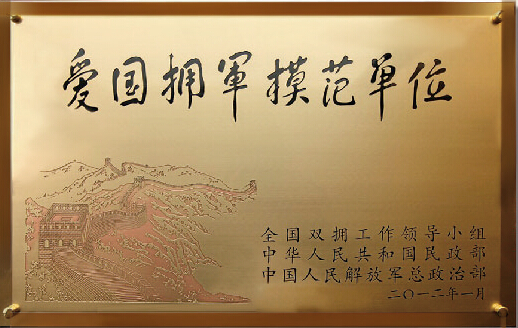 爱国拥軍模范单位
全国双拥工作领导小组
中华人民共和国民政部
中国人民解放军总政治部
二〇一二年一月